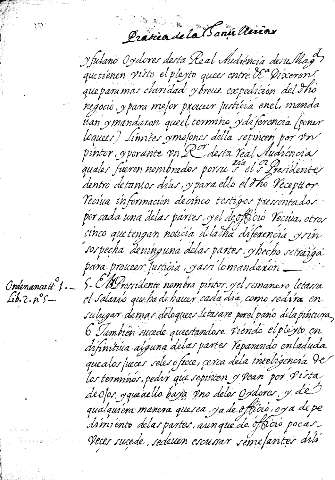 Pratica de la Chanzilleria
y fulano Oydores desta Real Audiencia de su Magd
que tienen visto el pleyto que es entre &a Dixeron
que para mas claridad y breve expedicion del dho
negocio, y para mejor proveer justicia en el, manda
uan y mandaron que el termino y diferencia (poner
le que es) Limites y mojones della se pinten por un
pintor, y por ente un Rr desta Real Audiencia
quales fueron nombrados por su sria el sr Presidente
dentro de tantos dias, y para ello el dho Receptor
Reciua informacion de cinco testigos presentados
por cada una de las partes, y el de officio Reciua otros
cinco que tengan noticia de la dha diferencia, y sin
sospecha de ninguna de las partes, y hecho se traiga
para proueer justicia, y assi lo mandaron
Ordenanças tto 1
Lib. 2. n. 5
5 El Presidente nombra pintor, y el semanero le tassa
el salario que ha de hauer cada dia, como se dira en
su lugar demas de lo que es la tasa por el paño i la pintura,
6 Tambien sucede que estandose viendo el pleyto en
difinitiua alguna de las partes reparando en la duda
que a los jueces se les ofrece, cerca de la inteligencia de
los terminos, pedir que se pinten y vean por vista
de ojos, y que a ello baya uno de los Oydores, y de
qualquiera manera que sea, ya de officio, o ya de pe
dimiento de las partes, aunque de officio pocas
veces sucede, se deuen escusar semejantes dili